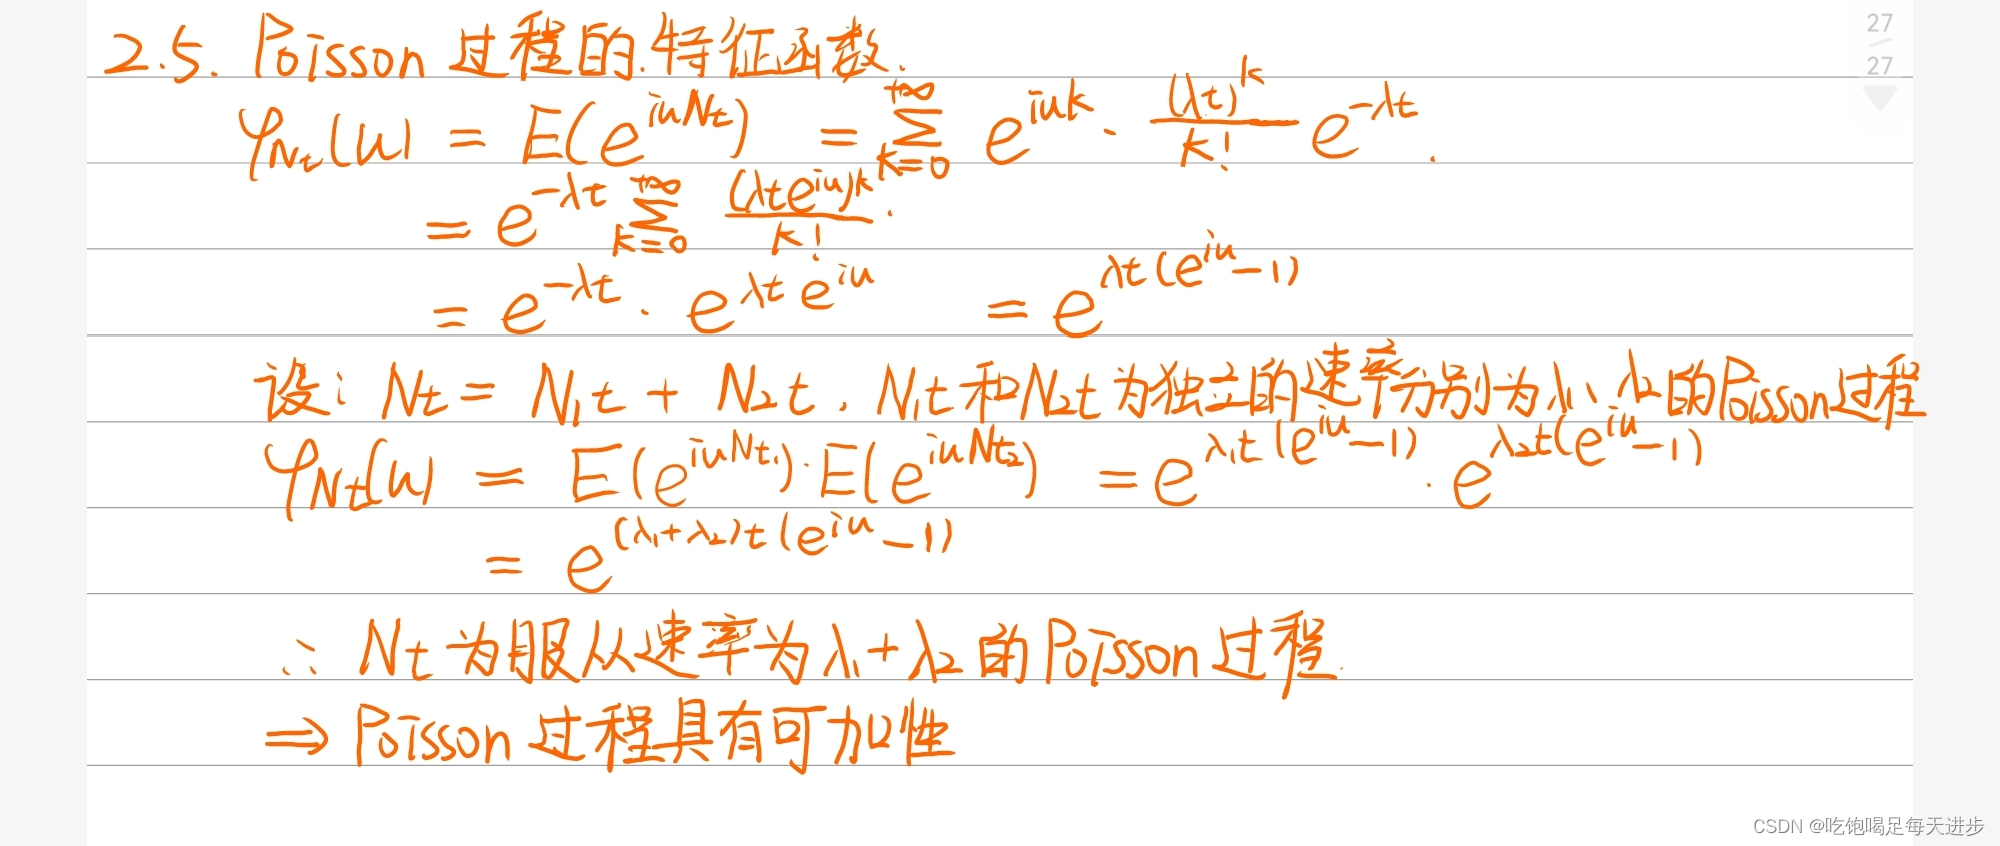 2.5. Poisson 过程的特征函数.
φ_{Nt}(u) = E(e^{iuNt}) = \sum_{k=0}^{+∞} e^{iuk} · \frac{(λt)^k}{k!} e^{-λt}.
= e^{-λt} \sum_{k=0}^{+∞} \frac{(λte^{iu})^k}{k!}.
= e^{-λt} · e^{λte^{iu}} = e^{λt(e^{iu}-1)}
设: Nt = N₁t + N₂t. N₁t 和 N₂t 为独立的速率分别为 λ₁、λ₂ 的 Poisson 过程
φ_{Nt}(u) = E(e^{iuNt₁})·E(e^{iuNt₂}) = e^{λ₁t(e^{iu}-1)} · e^{λ₂t(e^{iu}-1)}
= e^{(λ₁+λ₂)t(e^{iu}-1)}
∴ Nt 为服从速率为 λ₁+λ₂ 的 Poisson 过程.
⇒ Poisson 过程具有可加性
27
27
CSDN @吃饱喝足每天进步